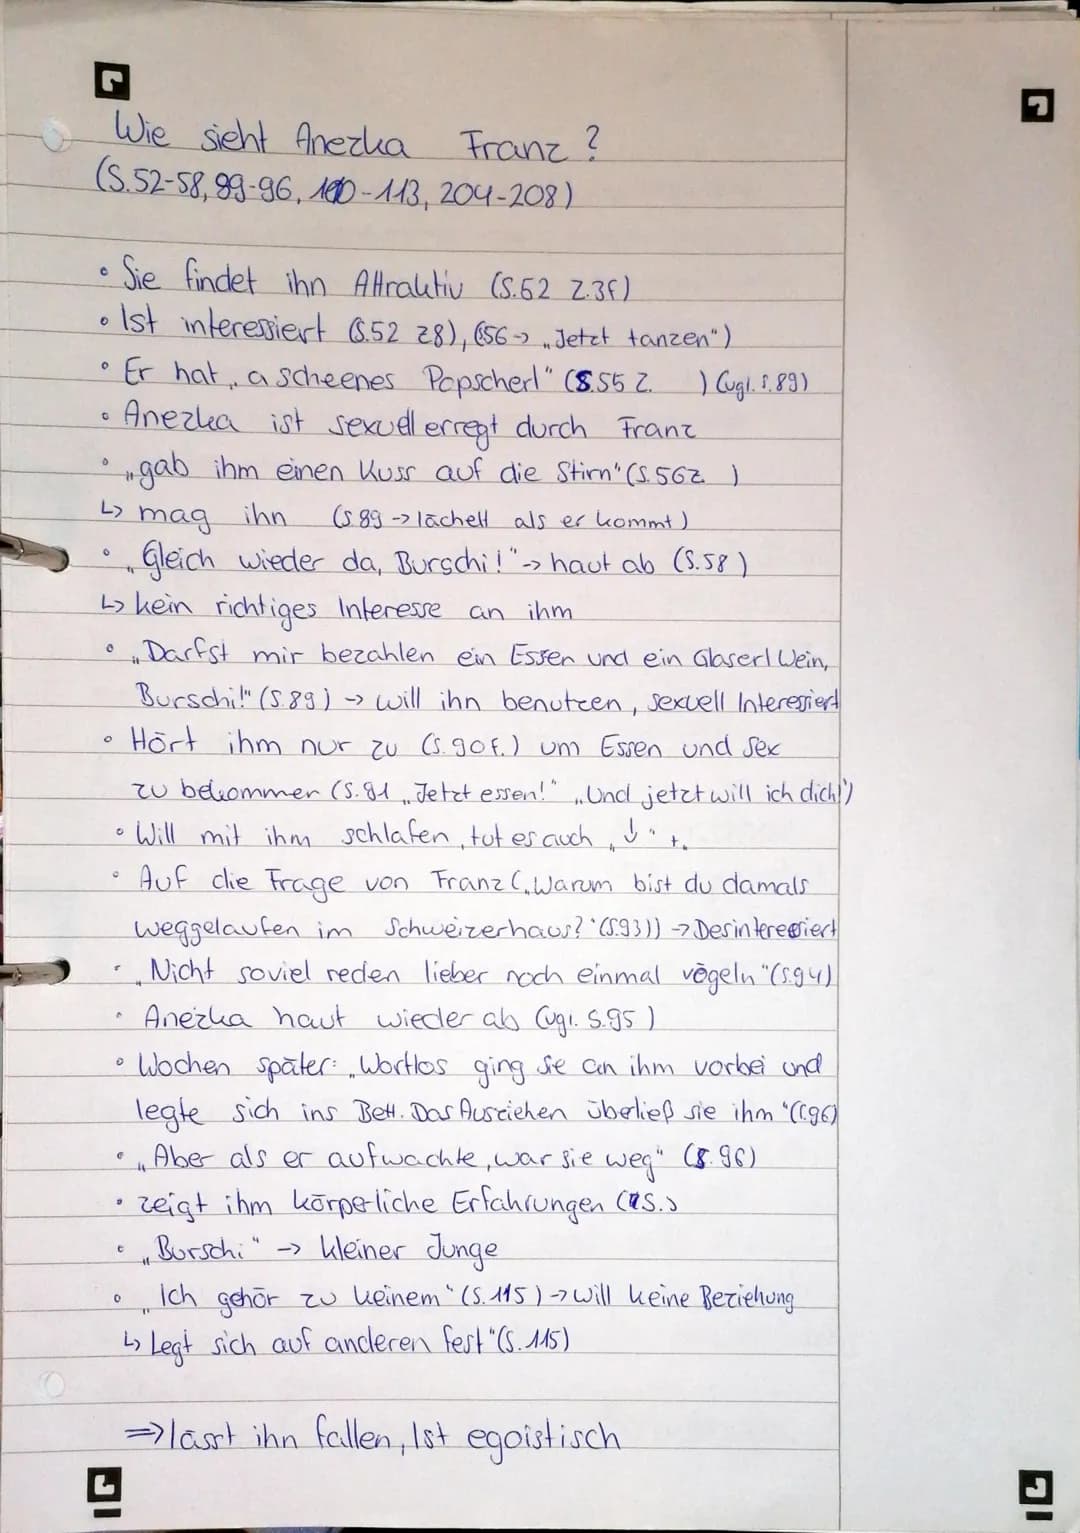 Wie sieht Anezka Franz?
(S.52-58, 89-96, 100-113, 204-208)
• Sie findet ihn Attraktiv (S.52 Z.3f)
• Ist interessiert (S.52 Z8), (S56-> „Jetzt tanzen")
• Er hat „a scheenes Popscherl" (S.55 Z. ) (vgl. S.89)
• Anezka ist sexuell erregt durch Franz
• „gab ihm einen Kuss auf die Stirn" (S.56Z )
↳ mag ihn (S.89 -> lächelt als er kommt)
• „Gleich wieder da, Burschi!" -> haut ab (S.58)
↳ kein richtiges Interesse an ihm
• „Darfst mir bezahlen ein Essen und ein Glaserl Wein,
Burschi!" (S.89) -> will ihn benutzen, sexuell Interessiert
• Hört ihm nur zu (S.90f.) um Essen und Sex
zu bekommer (S.91 „Jetzt essen!" „Und jetzt will ich dich!")
• Will mit ihm schlafen, tut es auch „↓" +.
• Auf die Frage von Franz („Warum bist du damals
weggelaufen im Schweizerhaus?" (S.93)) -> Desinteressiert
• „Nicht soviel reden lieber noch einmal vögeln" (S.94)
• Anezka haut wieder ab (vgl. S.95)
• Wochen später: „Wortlos ging sie an ihm vorbei und
legte sich ins Bett. Das Ausziehen überließ sie ihm" (S.96)
• „Aber als er aufwachte, war sie weg" (S.96)
• zeigt ihm körperliche Erfahrungen
• „Burschi" -> kleiner Junge
• „Ich gehör zu keinem" (S.115) -> will keine Beziehung
↳ Legt sich auf anderen fest" (S.115)
=> lässt ihn fallen, Ist egoistisch